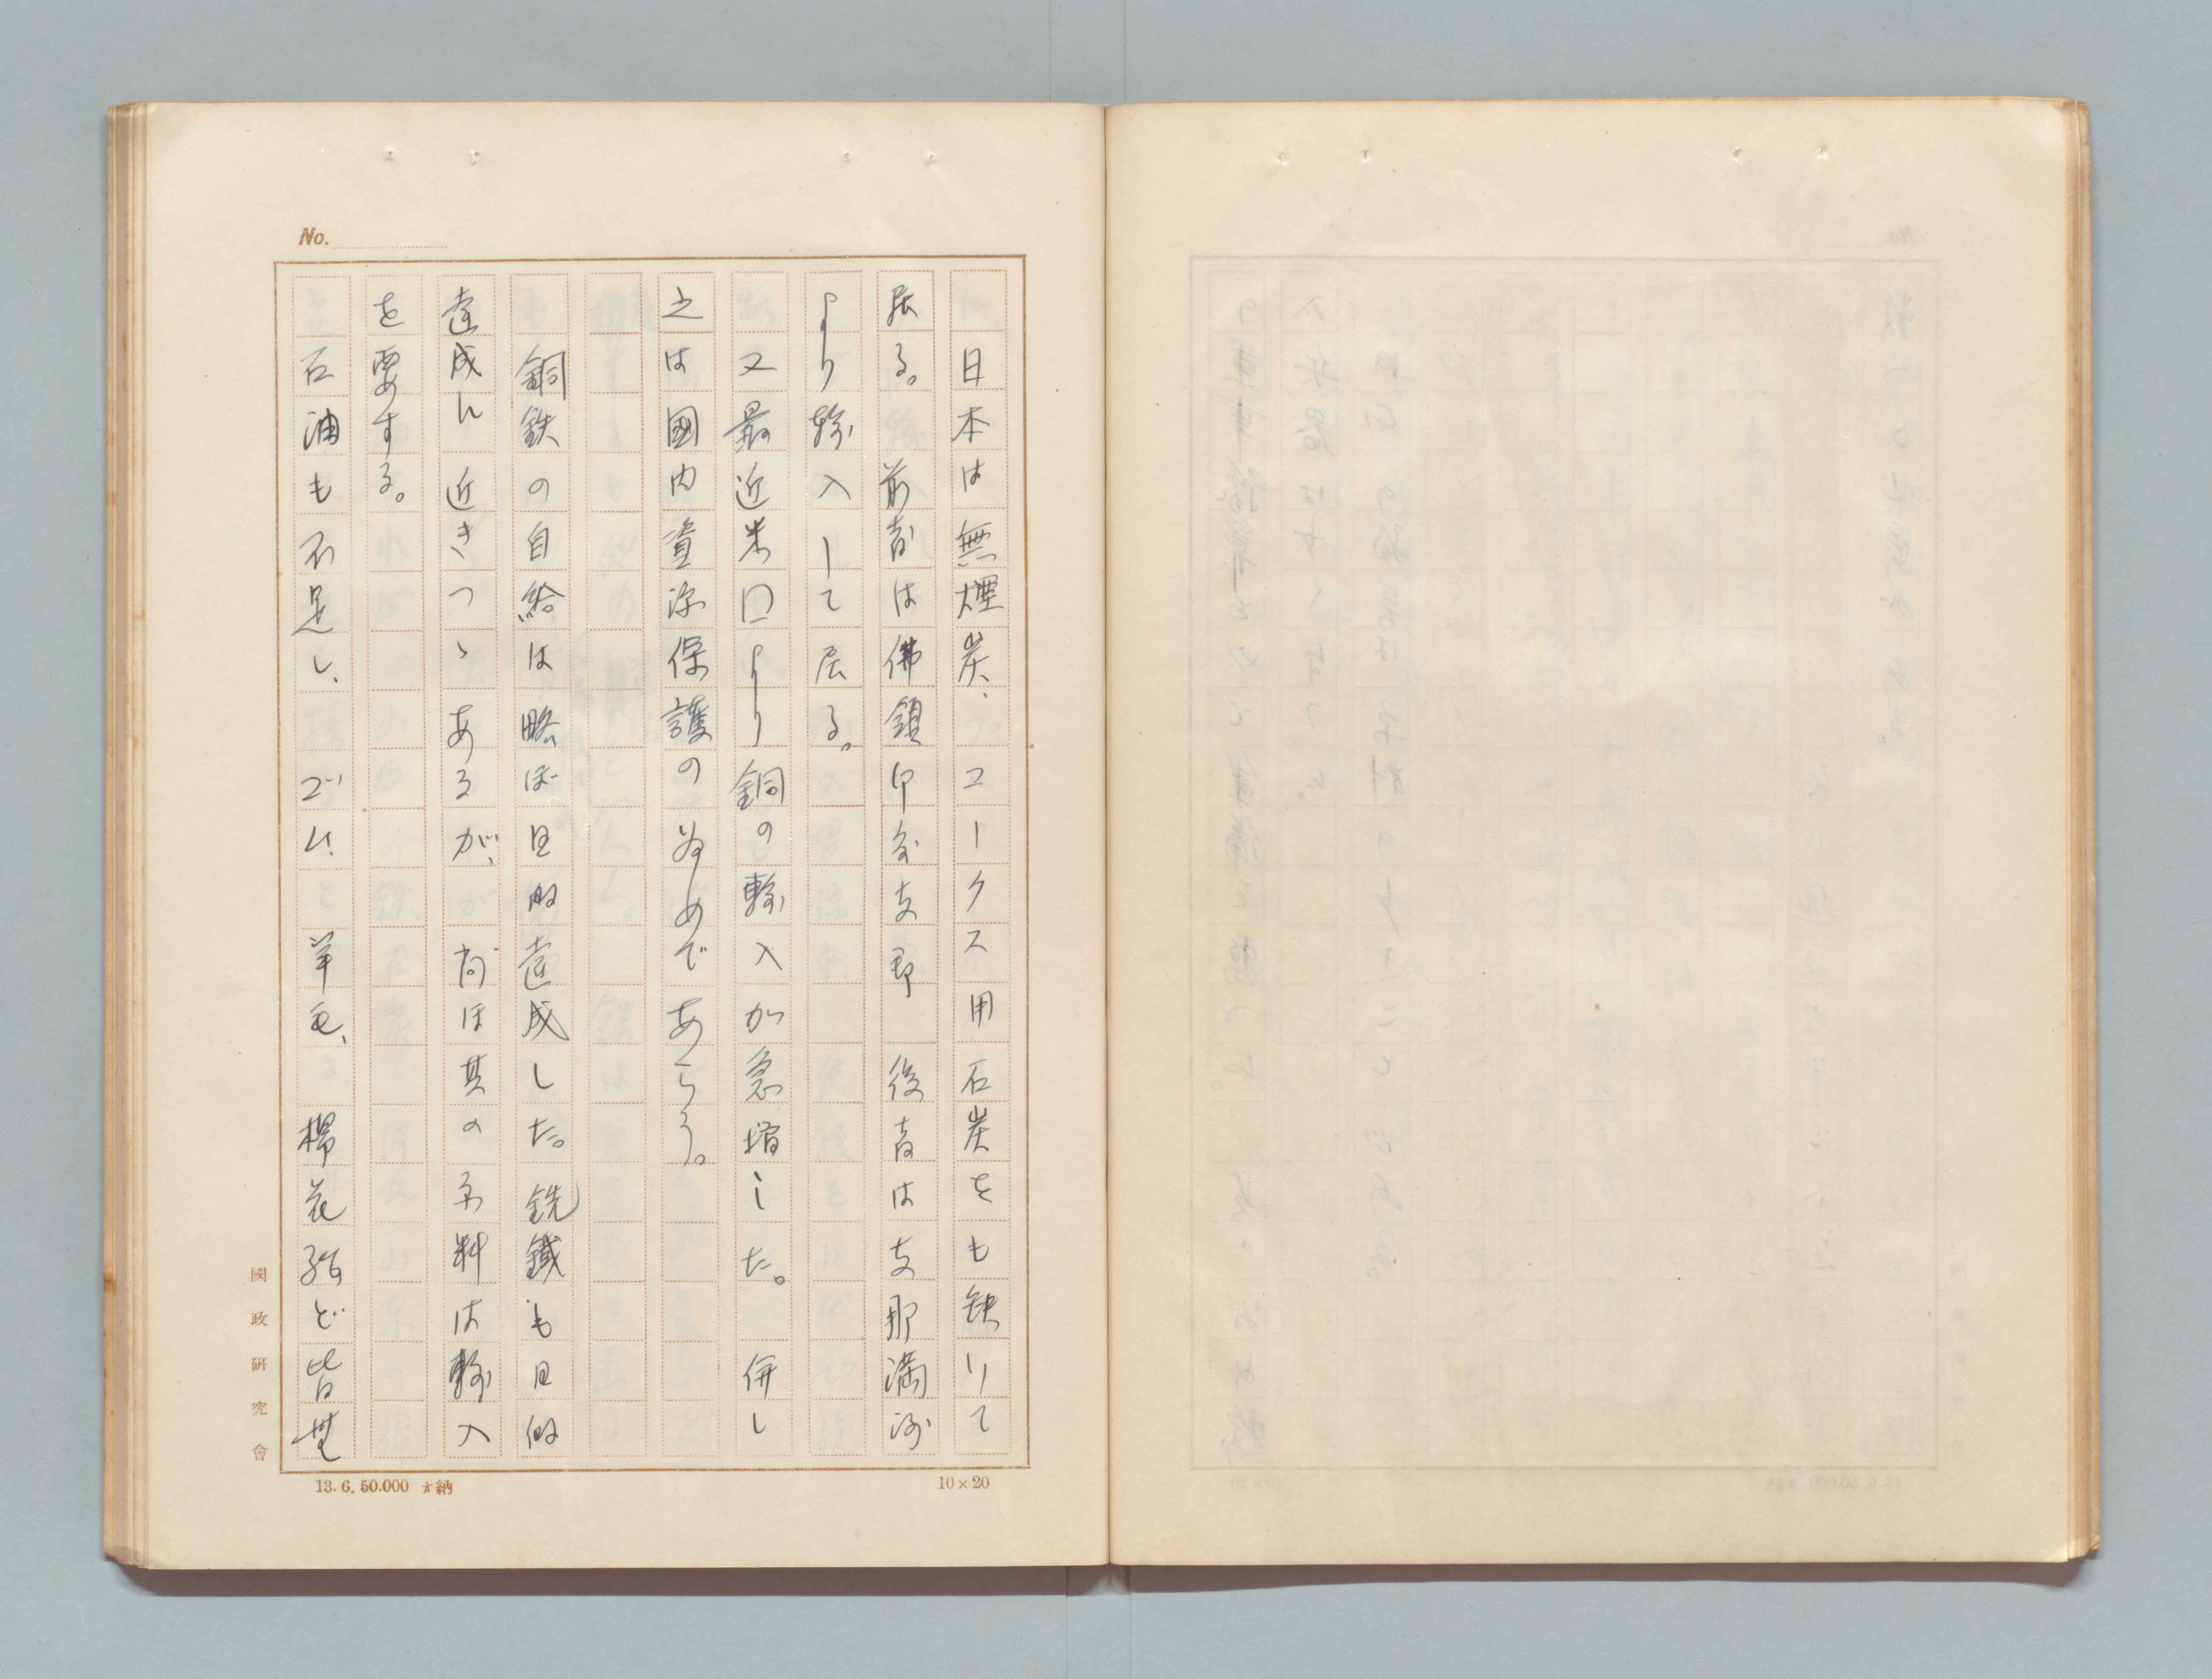 No.
日本は無煙炭、コークス用石炭をも缺りて
居る。前者は佛領印度支那 後者は支那満洲
より輸入して居る。
又最近米口より銅の輸入が急増した。 併し
之は國内資源保護の為めであらう。
銅鉄の自給は略ぼ目的達成した。銑鐵も目的
達成に近きつゝあるが、尚ほ其の原料は輸入
を要する。
石油も不足し、ゴム、羊毛、棉花殆ど皆無
國政研究會
13.6.50.000 納
10×20